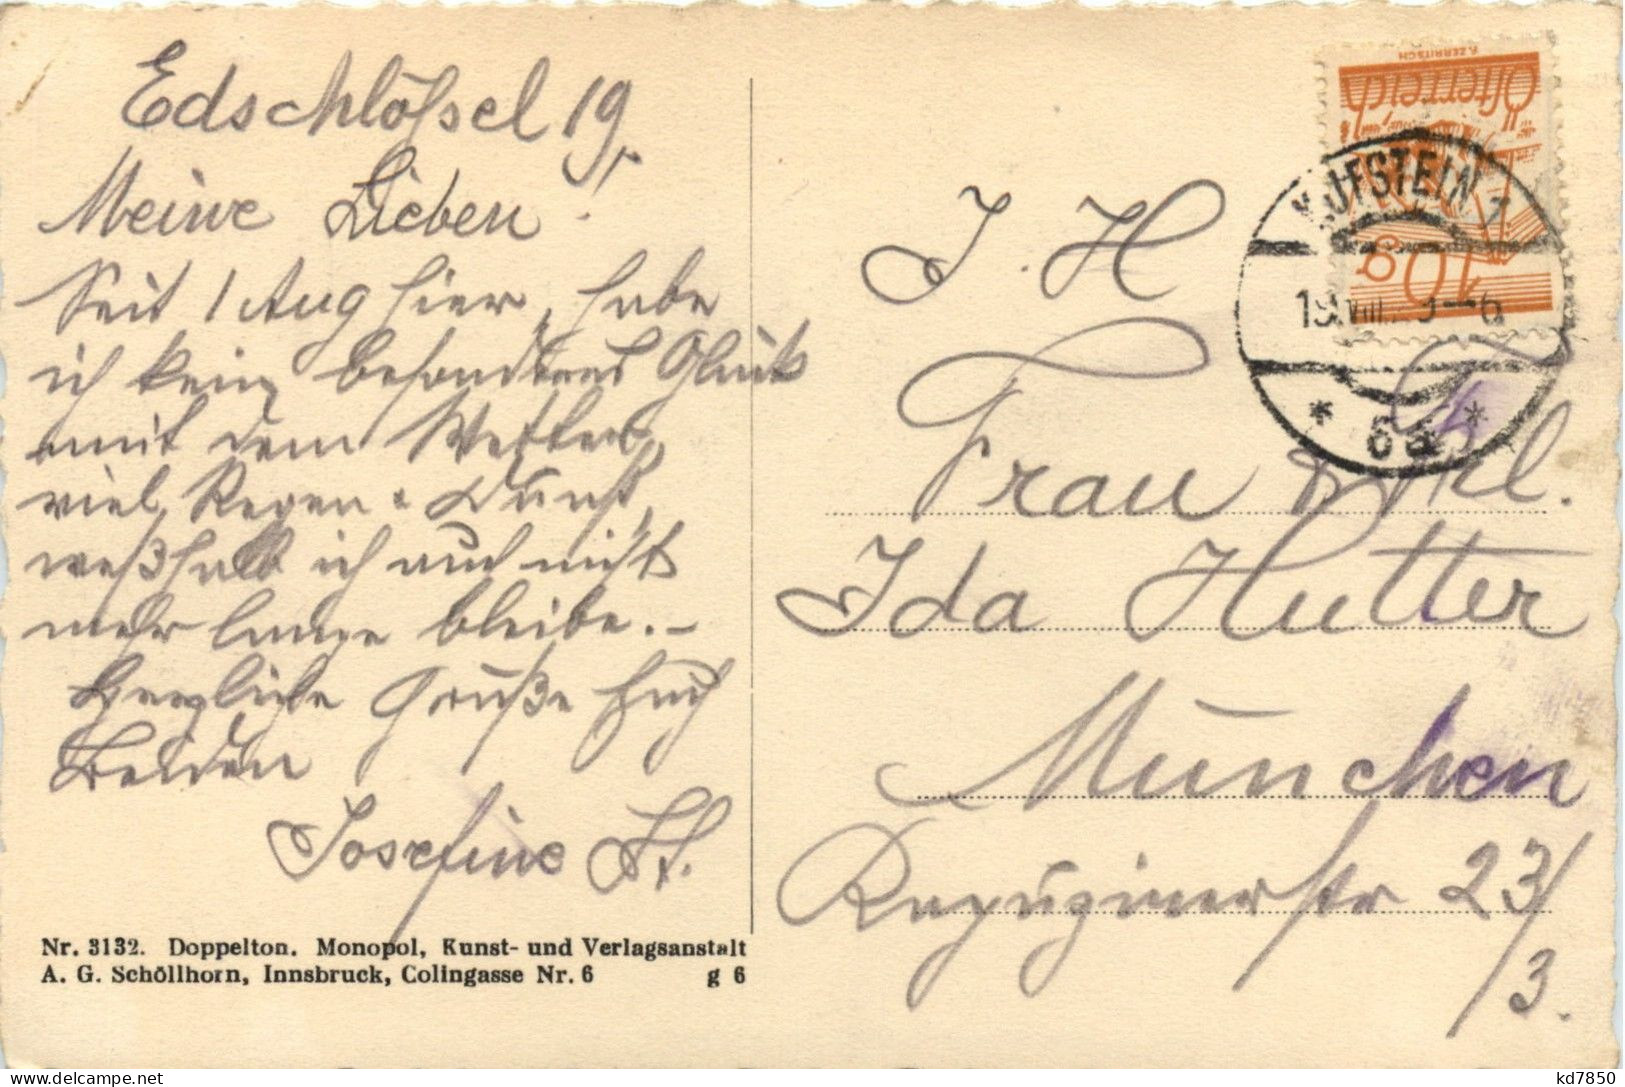 Edschlößel 19,
Meine Lieben!
Seit 1 Aug hier, habe
ich kein besonderes Glück
mit dem Wetter,
viel Regen & Dunst,
weßhalb ich auch nicht
mehr lange bleibe. –
Herzliche Grüße Euch
Beiden
Josefine H.
Nr. 3132. Doppelton. Monopol, Kunst- und Verlagsanstalt
A. G. Schöllhorn, Innsbruck, Colingasse Nr. 6 g 6
F. ZERRITSCH
Österreich
10 g
KUFSTEIN 1
19.VIII. –6
* 6a *
I. H
Frau & Frl.
Ida Hutter
München
Kapuzinerstr 23/
/3.
kd7850